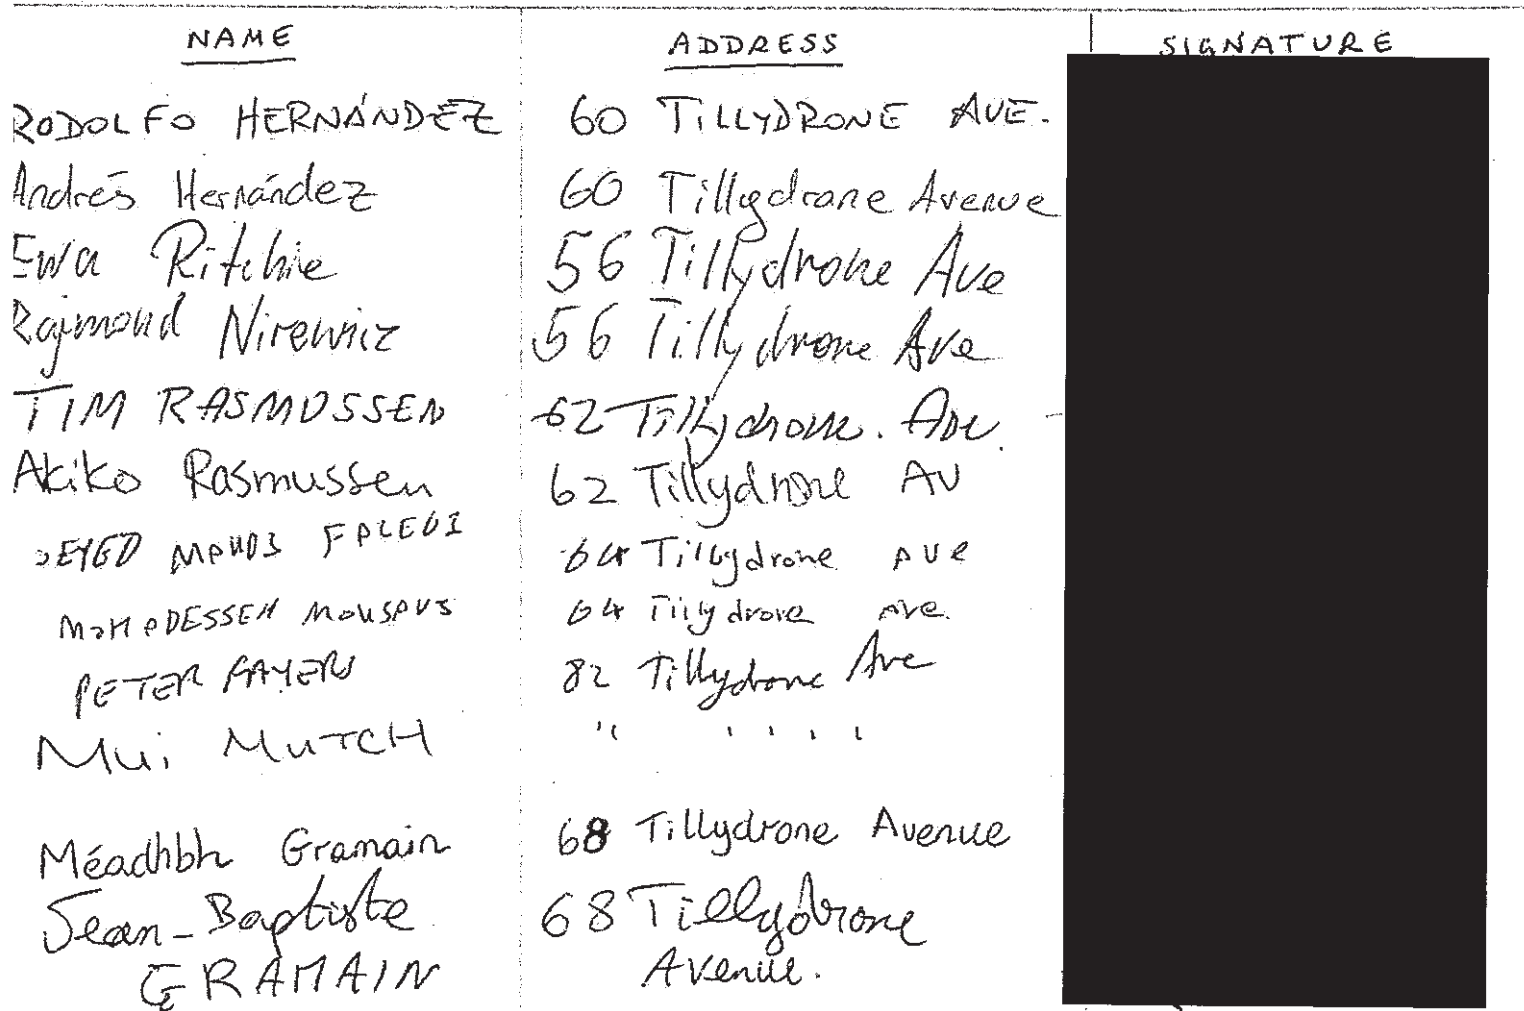 NAME ADDRESS SIGNATURE
RODOLFO HERNÁNDEZ 60 TILLYDRONE AVE.
Andrés Hernández 60 Tillydrone Avenue
Ewa Ritchie 56 Tillydrone Ave
Rajmond 56 Tillydrone Ave
TIM RASMUSSEN 62 Tillydrone. Ave.
Akiko Rasmussen 62 Tillydrone AV
64 Tillydrone Ave
64 Tillydrone Ave.
PETER 82 Tillydrone Ave
Mui MUTCH " " " "
Méadhbh Gramain 68 Tillydrone Avenue
Jean-Baptiste 68 Tillydrone
GRAMAIN Avenue.